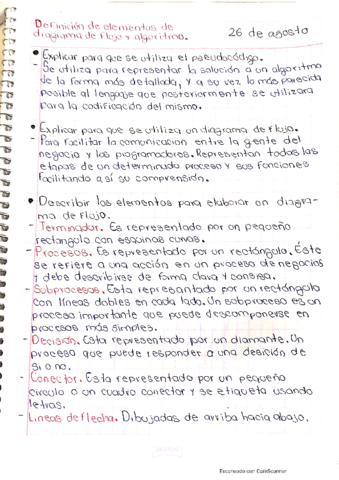 Definición de elementos de
diagrama de flujo y algoritmo.
26 de agosto
• Explicar para que se utiliza el pseudocódigo.
- Se utiliza para representar la solución a un algoritmo
de la forma más detallada, y a su vez lo más parecida
posible al lenguaje que posteriormente se utilizara
para la codificación del mismo.
• Explicar para que se utiliza un diagrama de flujo.
- Para facilitar la comunicacion entre la gente del
negocio y los programadores. Representan todas las
etapas de un determinado proceso y sus funciones
facilitando así su comprensión.
• Describir los elementos para elaborar un diagra-
ma de flujo.
- Terminador. Es representado por un pequeño
rectangulo con esquinas curvas.
- Procesos. Es representado por un rectángulo. Éste
se refiere a una acción en un proceso de negocios
y debe describirse de forma clara y consisa.
- Subprocesos. Esta represantado por un rectángulo
con líneas dobles en cada lado. Un subproceso es un
proceso importante que puede descomponerse en
procesos más simples.
- Decisión. Esta representado por un diamante. Un
proceso que puede responder a una desición de
si o no.
- Conector. Esta representado por un pequeño
circulo o un cuadro conector y se etiqueta usando
letras.
- Líneas de flecha. Dibujadas de arriba hacia abajo.
Escaneado con CamScanner